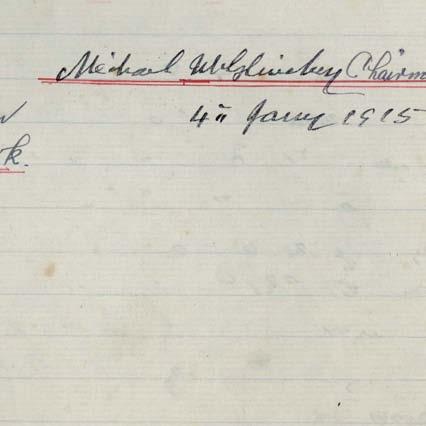 Michael McGlinchey Chairm
4" Jany 1915
k.